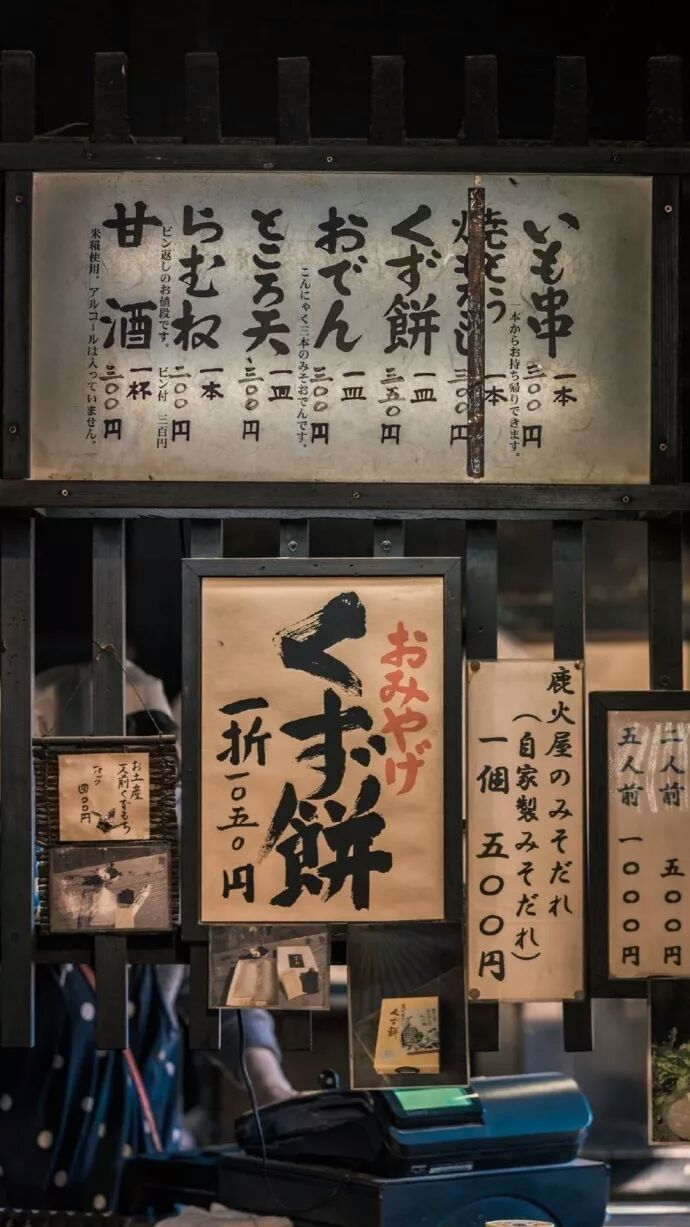 いも串
一本
三〇〇円
一本からお持ち帰りできます。
一本
くず餅
一皿
三五〇円
おでん
一皿
三〇〇円
こんにゃく三本のみそおでんです。
ところ天
一皿
三〇〇円
らむね
一本
二〇〇円
ビン返しのお値段です。 ビン付 三百円
甘酒
一杯
三〇〇円
米糀使用。アルコールは入っていません。
おみやげ
くず餅
一折一〇五〇円
鹿火屋のみそだれ
（自家製みそだれ）
一個 五〇〇円
二人前 五〇〇円
五人前 一〇〇〇円
お土産
一人前くずもち
四〇〇円
くず餅